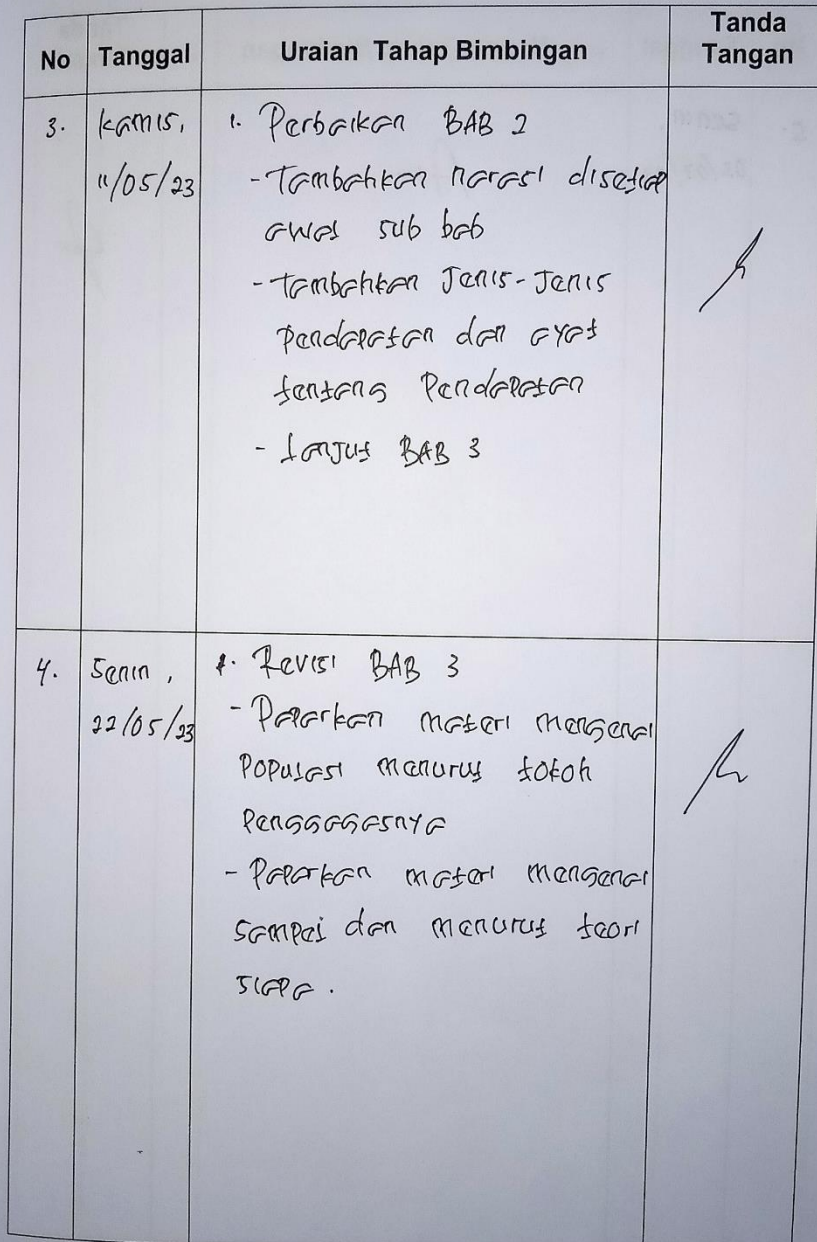 No Tanggal Uraian Tahap Bimbingan Tanda Tangan
3. Kamis, 11/05/23
1. Perbaikan BAB 2
- Tambahkan narasi disetiap
awal sub bab
- Tambahkan Jenis-Jenis
Pendapatan dan ayat
tentang Pendapatan
- Lanjut BAB 3
4. Senin, 22/05/23
1. Revisi BAB 3
- Paparkan materi mengenai
Populasi menurut tokoh
Penggagasnya
- Paparkan materi mengenai
Sampel dan menurut teori
siapa.